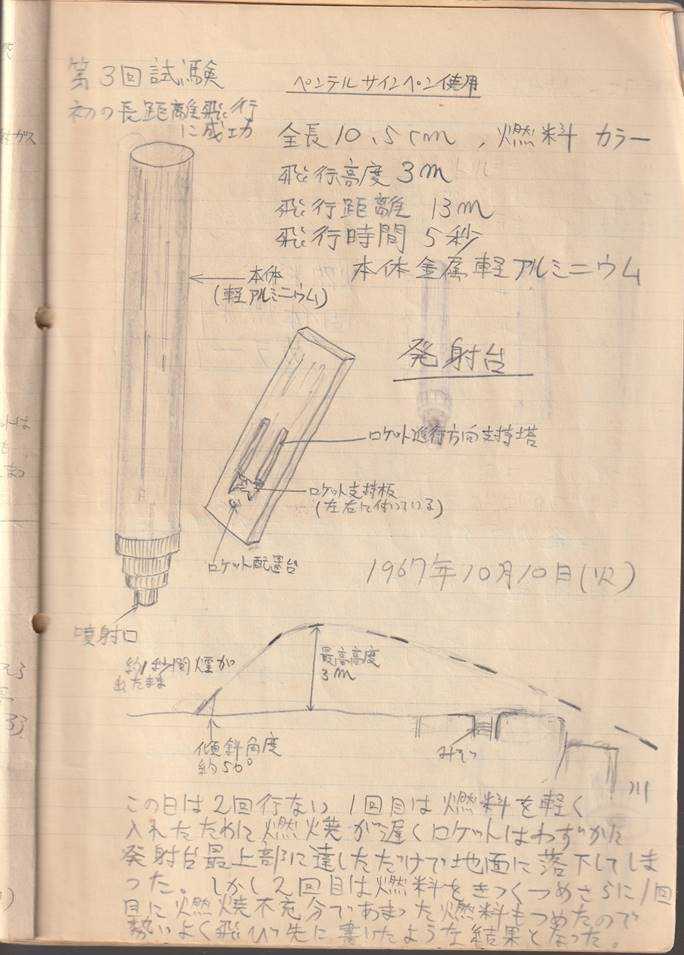 第3回試験
初の長距離飛行
に成功
ペンテルサインペン使用
全長10.5cm、燃料 カラー
飛行高度3m
飛行距離 13m
飛行時間 5秒
本体金属軽アルミニウム
本体
(軽アルミニウム)
発射台
ロケット進行方向支持塔
ロケット支持板
(左右に付いている)
ロケット配置台
1967年10月10日(火)
噴射口
約1秒間煙が
出たまま
最高高度
3m
傾斜角度
約50°
みぞ
川
この日は2回行ない、1回目は燃料を軽く
入れたために燃焼が遅くロケットはわずかに
発射台最上部に達しただけで地面に落下してしま
った。しかし2回目は燃料をきつくつめさらに1回
目に燃焼不充分であまった燃料もつめたので
勢いよく飛び先に書いたような結果となった。